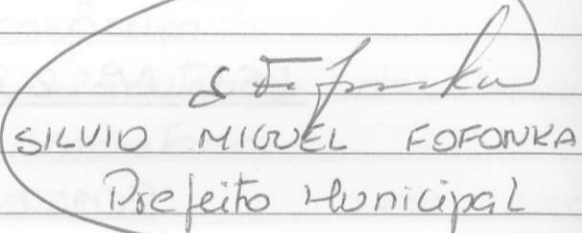 SILVIO MIGUEL FOFONKA
Prefeito Municipal